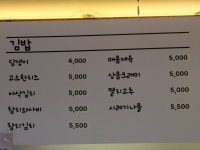 김밥
달걀이 4,000
고소한치즈 5,000
아삭김치 5,000
참치와사비 5,000
참치김치 5,500
매콤제육 5,000
상큼크래미 5,000
멸치고추 5,000
시래기나물 5,500